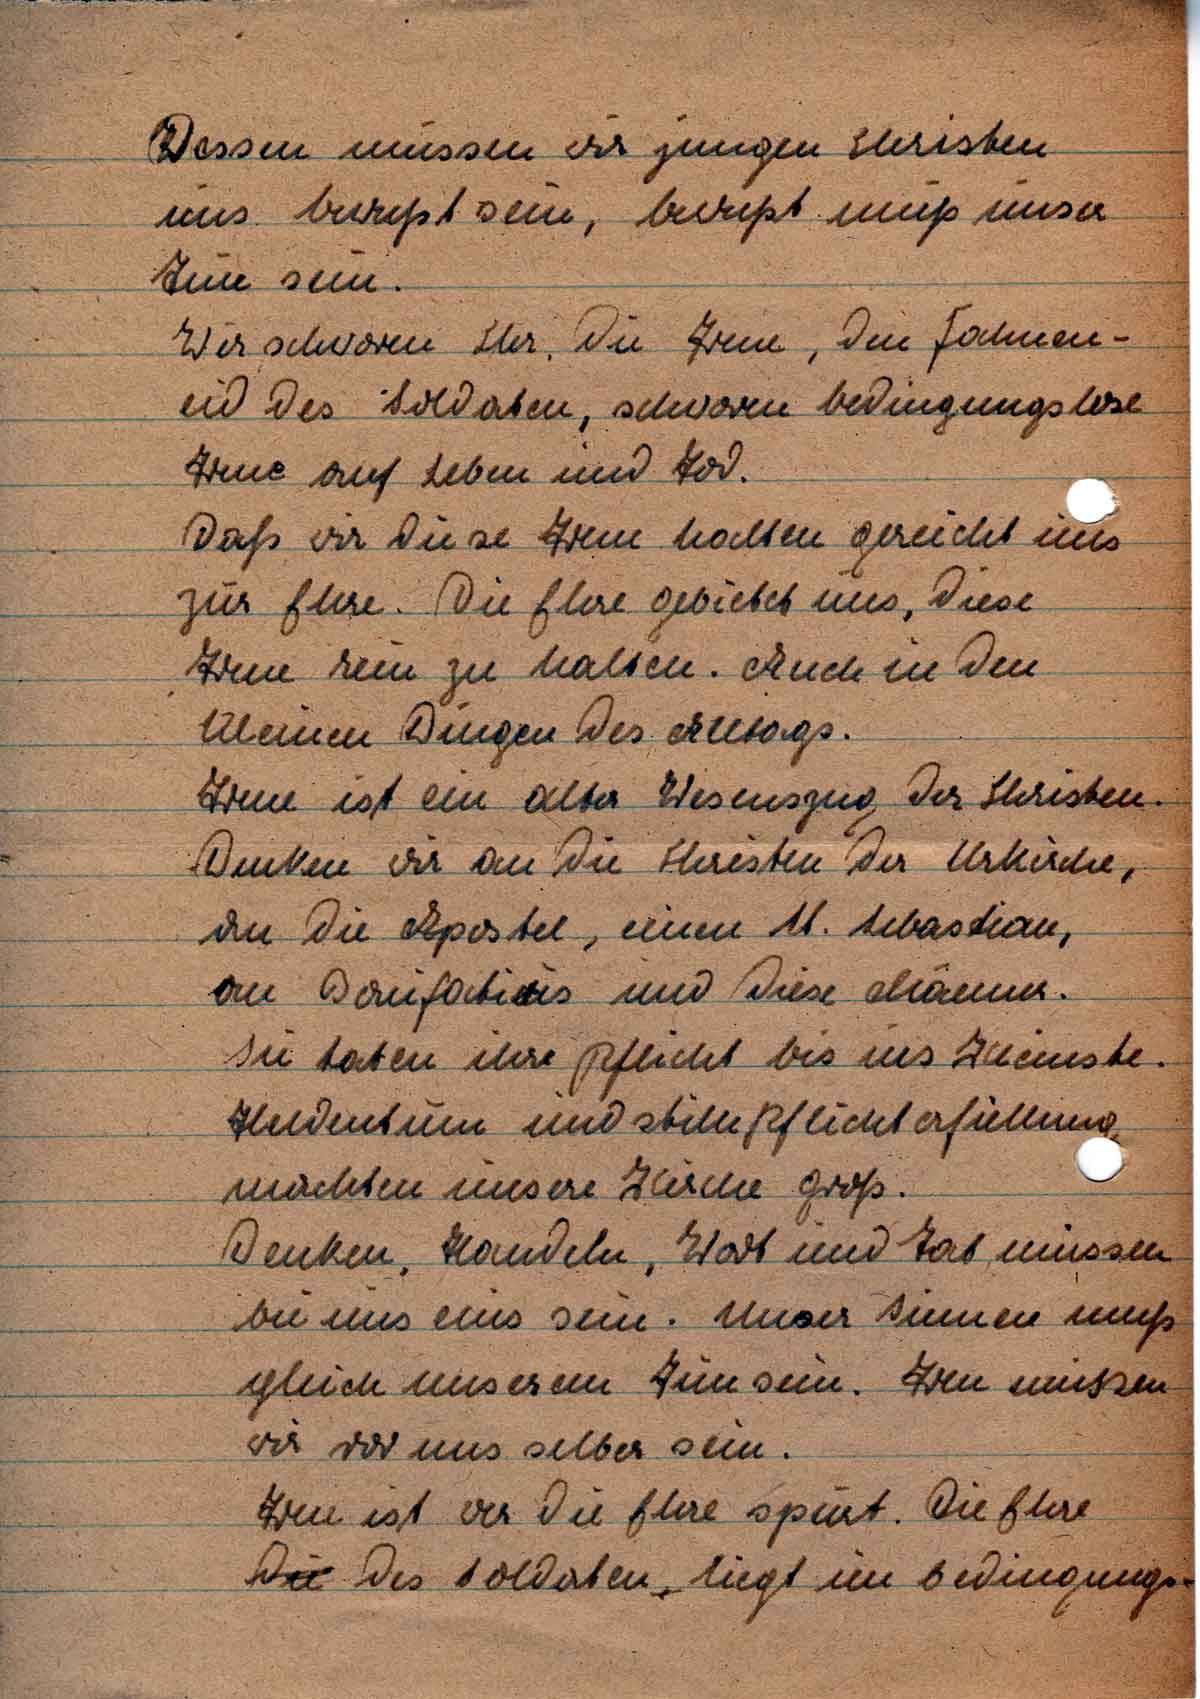 Dessen müssen wir jungen Christen
uns bewußt sein, bewußt muß unser
Tun sein.
Wir schworen Chr. die Treue, den Fahnen-
eid des Soldaten, schworen bedingungslose
Treue auf Leben und Tod.
Daß wir diese Treue halten gereicht uns
zur Ehre. Die Ehre gebietet uns, diese
Treue rein zu halten. Auch in den
kleinen Dingen des Alltags.
Treue ist ein alter Wesenszug der Christen.
Denken wir an die Christen der Urkirche,
an die Apostel, einen hl. Sebastian,
an Bonifatius und diese Männer.
Sie taten ihre Pflicht bis ins Kleinste.
Heldentum und stille Pflichterfüllung
machten unsere Kirche groß.
Denken, Handeln, Wort und Tat müssen
bei uns eins sein. Unser Sinnen muß
gleich unserem Tun sein. Treu müssen
wir vor uns selber sein.
Treu ist wer die Ehre spürt. Die Ehre
die des Soldaten, liegt im bedingungs-